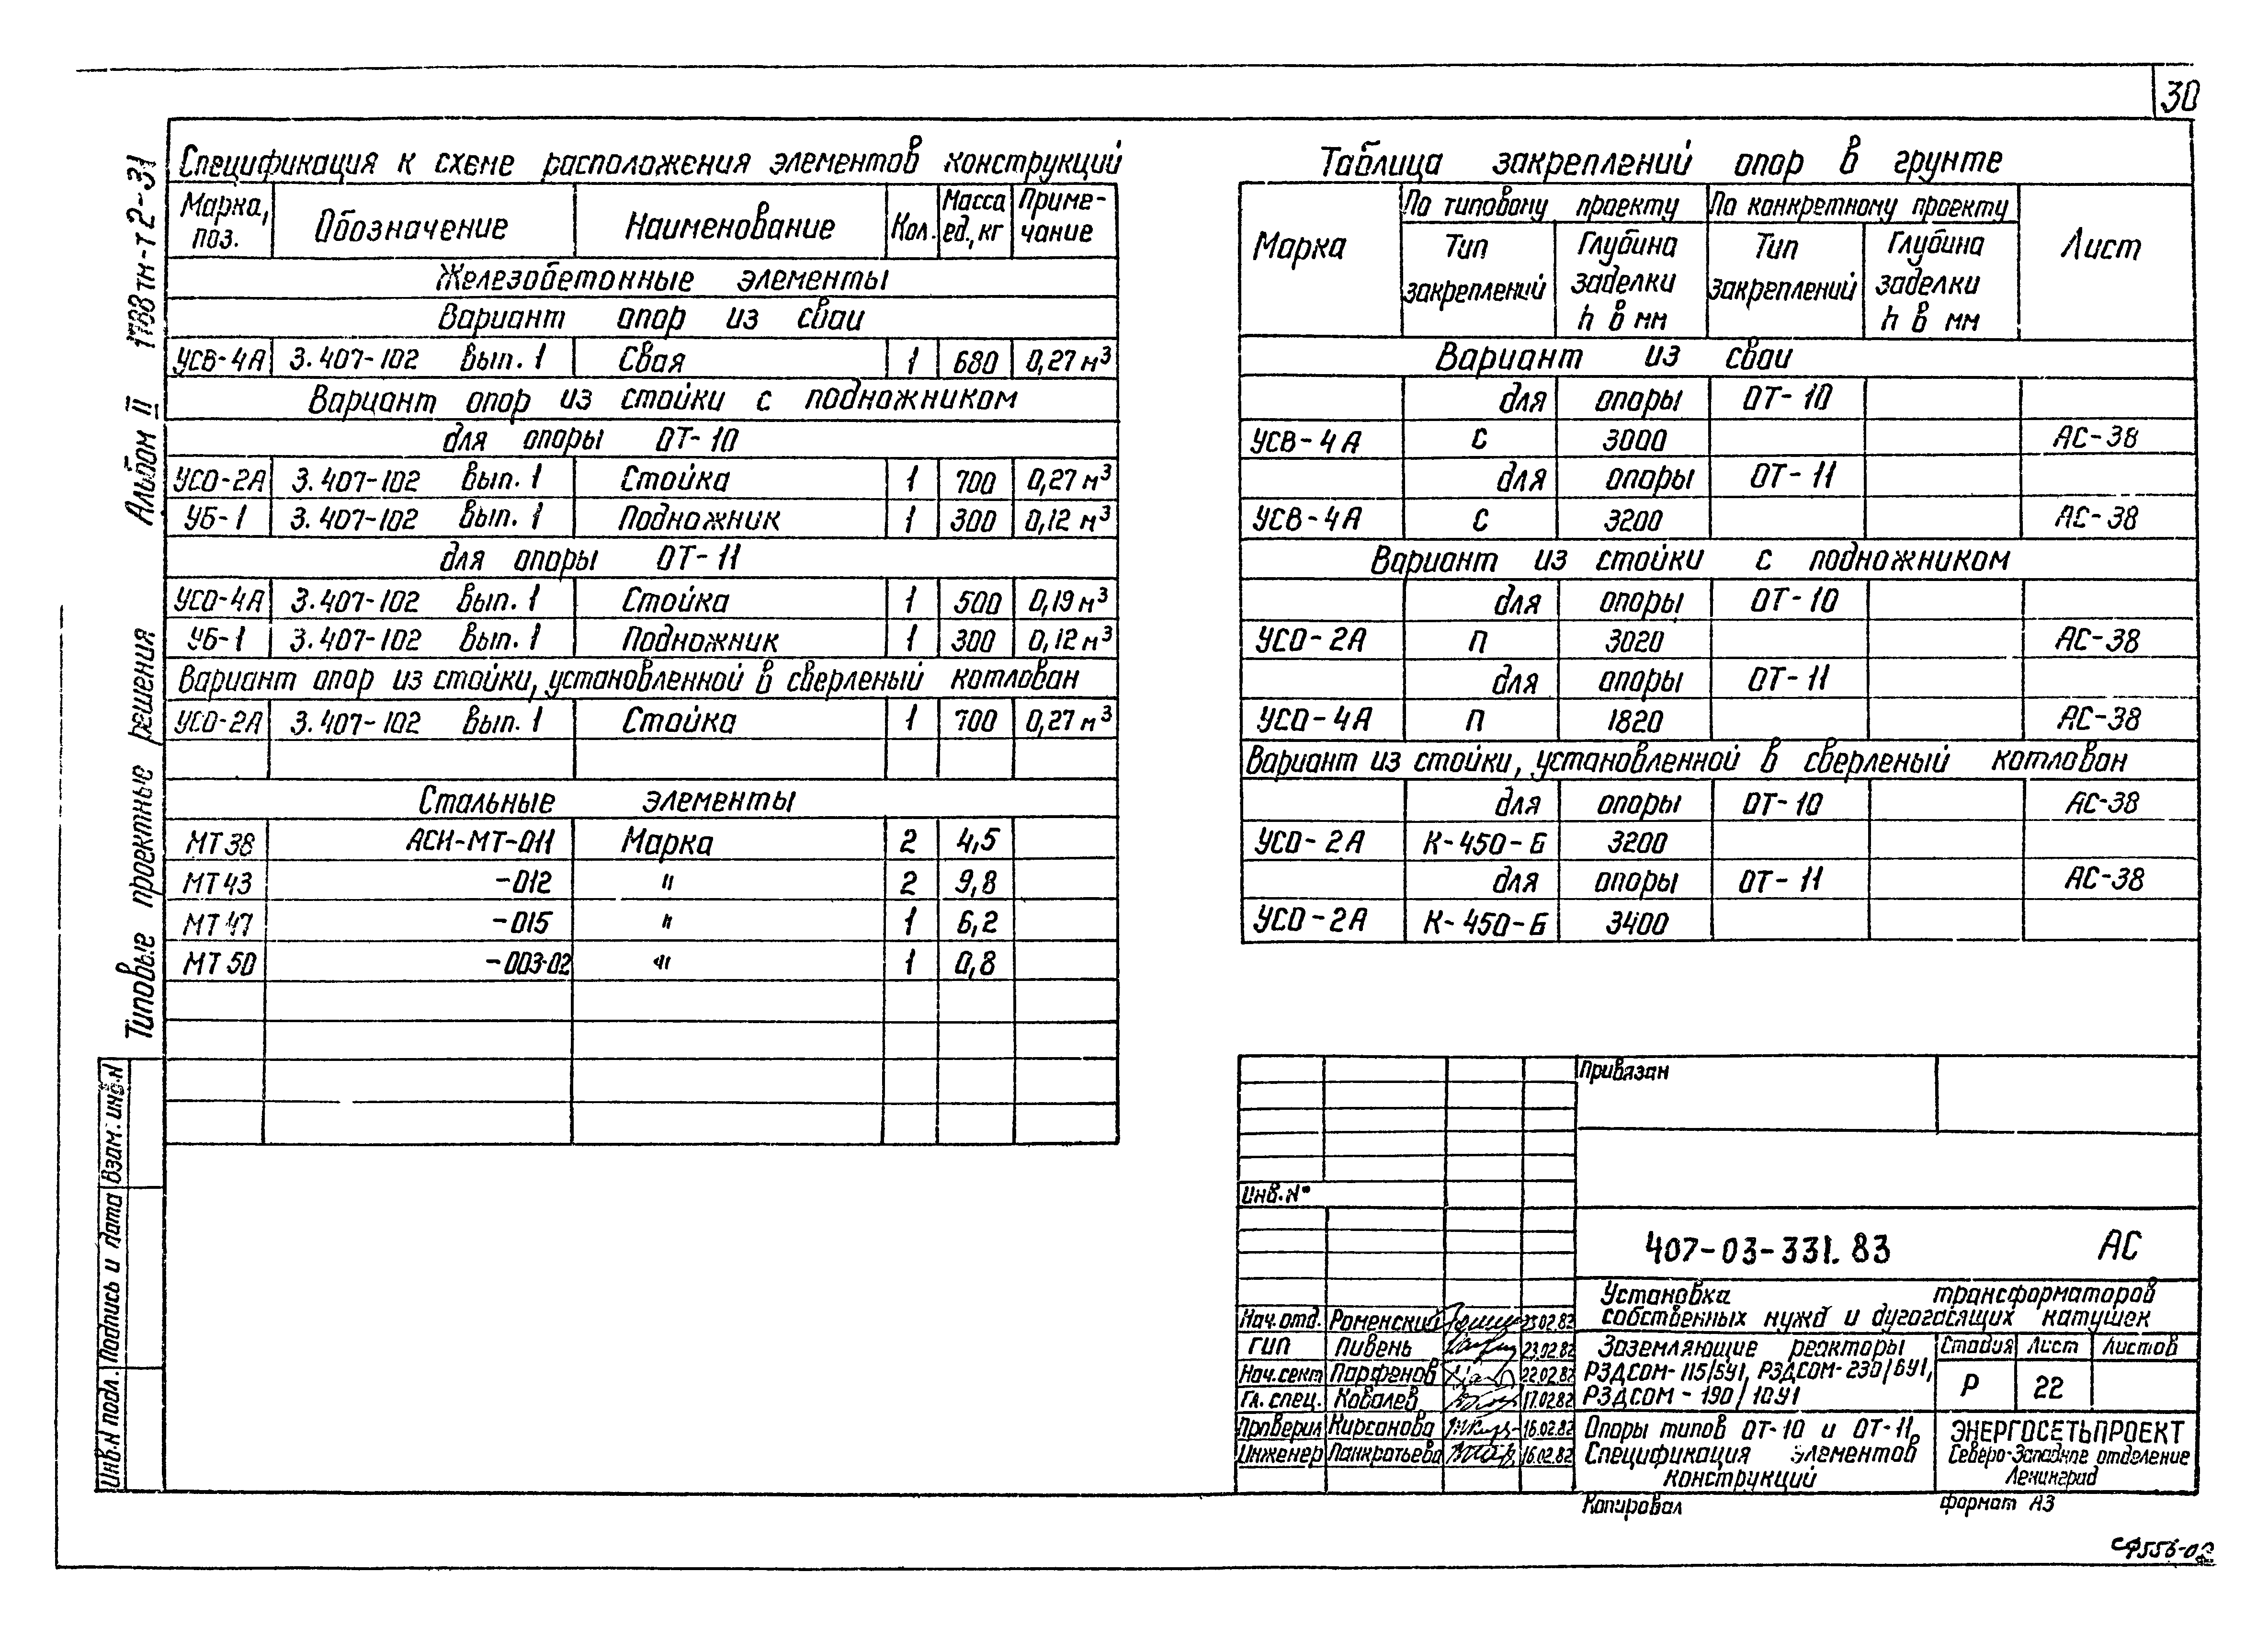 30
Спецификация к схеме расположения элементов конструкций
Марка, поз. Обозначение Наименование Кол. Масса ед., кг Приме-чание
Железобетонные элементы
Вариант опор из сваи
УСВ-4А 3.407-102 Вып. 1 Свая 1 680 0,27 м³
Вариант опор из стойки с подножником
для опоры ОТ-10
УСО-2А 3.407-102 Вып. 1 Стойка 1 700 0,27 м³
УБ-1 3.407-102 Вып. 1 Подножник 1 300 0,12 м³
для опоры ОТ-11
УСО-4А 3.407-102 Вып. 1 Стойка 1 500 0,19 м³
УБ-1 3.407-102 Вып. 1 Подножник 1 300 0,12 м³
Вариант опор из стойки, установленной в сверленый котлован
УСО-2А 3.407-102 Вып. 1 Стойка 1 700 0,27 м³
Стальные элементы
МТ38 АСИ-МТ-011 Марка 2 4,5
МТ43 -012 " 2 9,8
МТ47 -015 " 1 6,2
МТ50 -003-02 " 1 0,8
Таблица закреплений опор в грунте
Марка По типовому проекту По конкретному проекту Лист
Тип закреплений Глубина заделки h в мм Тип закреплений Глубина заделки h в мм
Вариант из сваи
для опоры ОТ-10
УСВ-4А С 3000 АС-38
для опоры ОТ-11
УСВ-4А С 3200 АС-38
Вариант из стойки с подножником
для опоры ОТ-10
УСО-2А П 3020 АС-38
для опоры ОТ-11
УСО-4А П 1820 АС-38
Вариант из стойки, установленной в сверленый котлован
для опоры ОТ-10 АС-38
УСО-2А К-450-Б 3200
для опоры ОТ-11 АС-38
УСО-2А К-450-Б 3400
Типовые проектные решения Альбом II 1788тм-т2-31
Инв.N подл. Подпись и дата Взам.инв.N
Привязан
Инв.N°
407-03-331.83 АС
Установка трансформаторов
собственных нужд и дугогасящих катушек
Нач.отд. Роменский 23.02.82
ГИП Пивень 23.02.82
Нач.сект Парфенов 22.02.82
Гл. спец. Ковалев 17.02.82
Проверил Кирсанова 16.02.82
Инженер Панкратьева 16.02.82
Заземляющие реакторы
РЗДСОМ-115/6У1, РЗДСОМ-230/6У1,
РЗДСОМ-190/10У1
Стадия Лист Листов
Р 22
Опоры типов ОТ-10 и ОТ-11.
Спецификация элементов
конструкций
ЭНЕРГОСЕТЬПРОЕКТ
Северо-Западное отделение
Ленинград
Копировал формат А3
СФ556-02